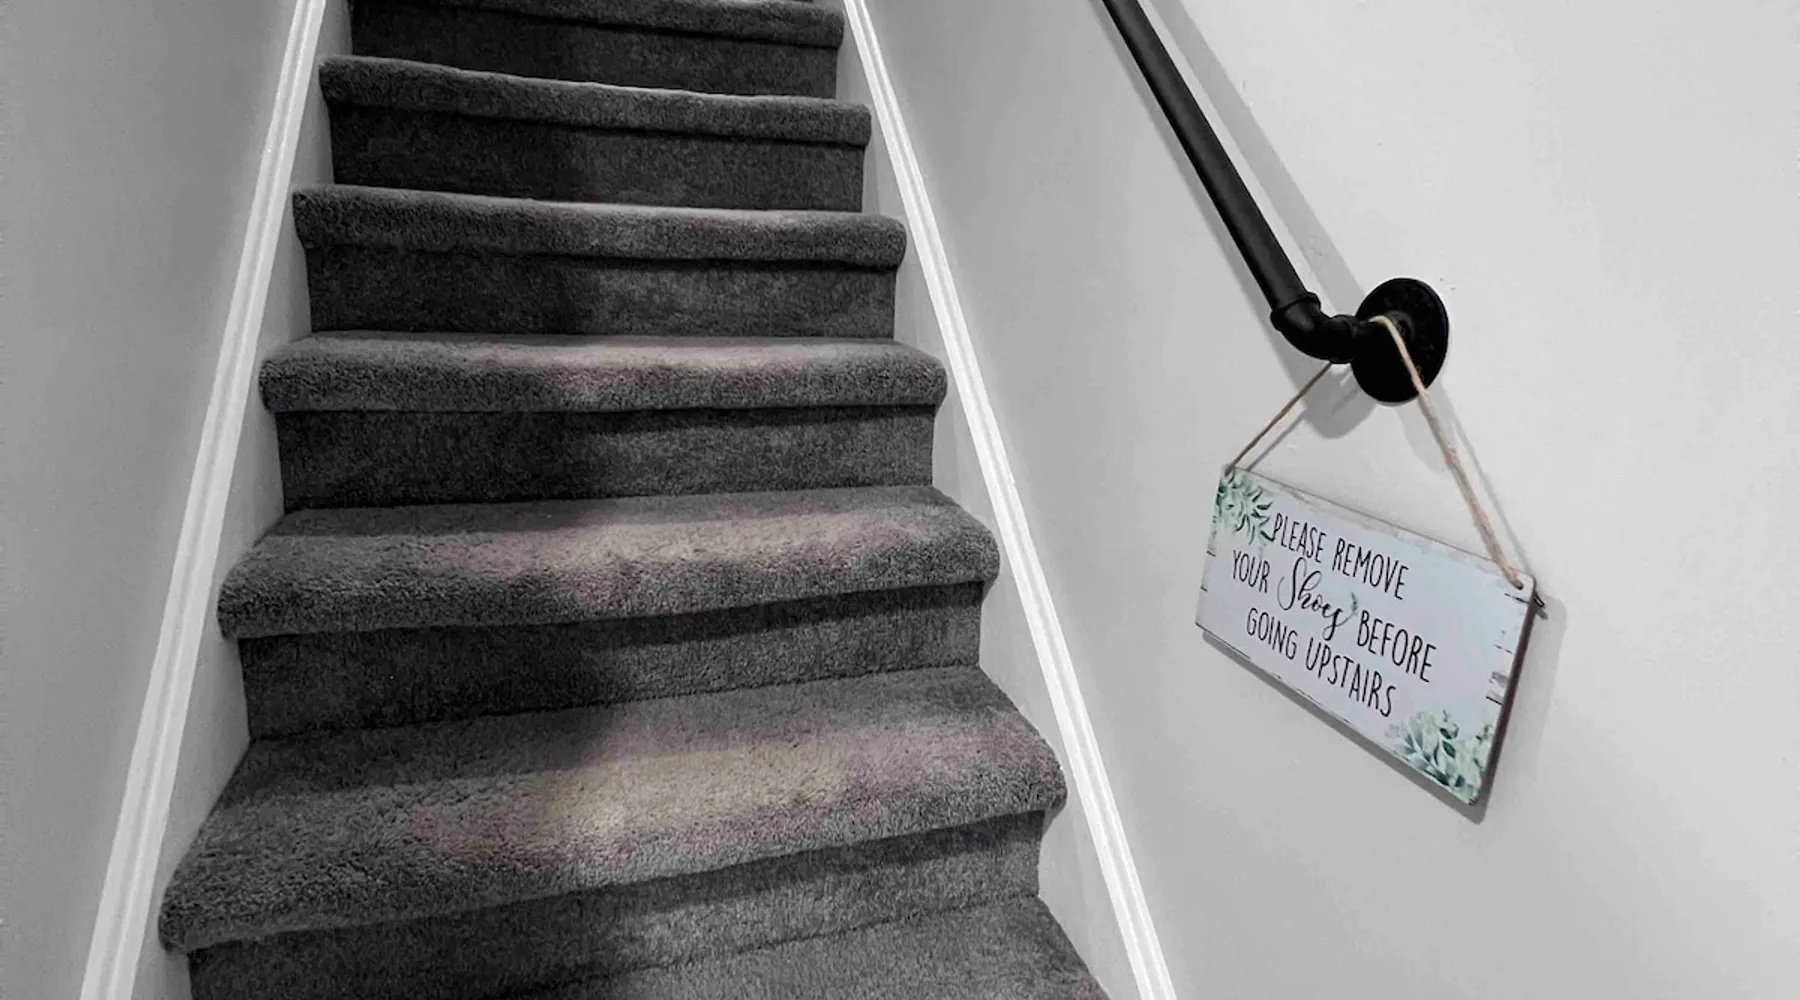 PLEASE REMOVE
YOUR Shoes BEFORE
GOING UPSTAIRS